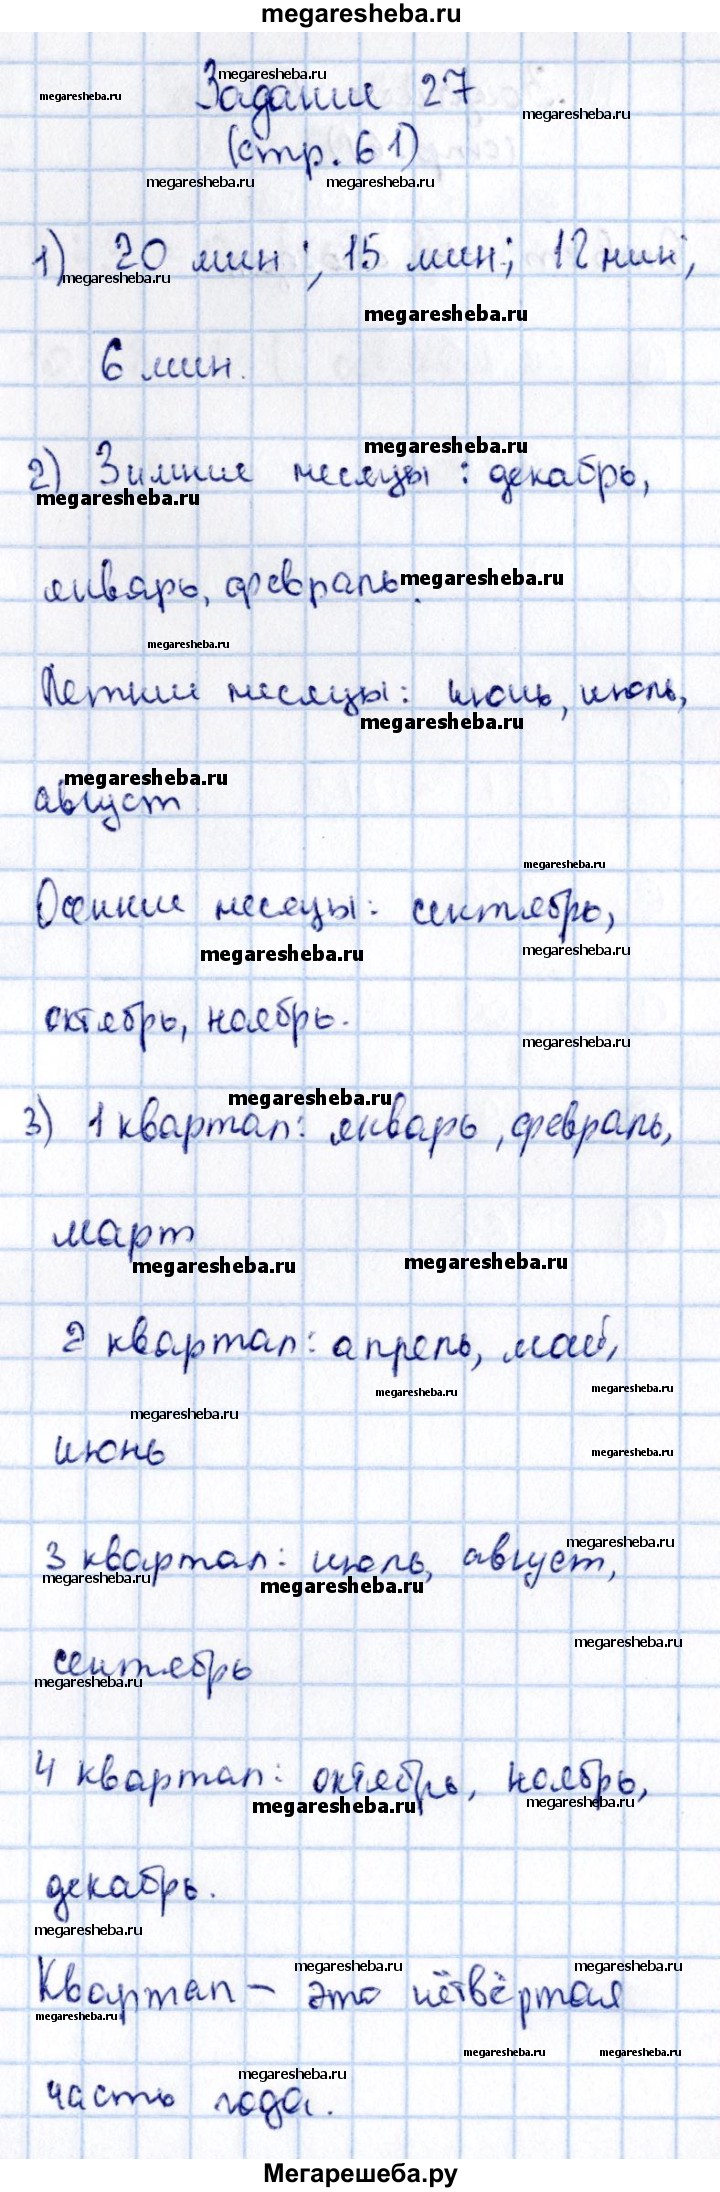 megaresheba.ru
Задание 27
(стр. 61)
1) 20 мин; 15 мин; 12 мин;
6 мин.
2) Зимние месяцы: декабрь,
январь, февраль.
Летние месяцы: июнь, июль,
август
Осенние месяцы: сентябрь,
октябрь, ноябрь.
3) 1 квартал: январь, февраль,
март
2 квартал: апрель, май,
июнь
3 квартал: июль, август,
сентябрь
4 квартал: октябрь, ноябрь,
декабрь.
Квартал – это чётвёртая
часть года.
Мегарешеба.ру